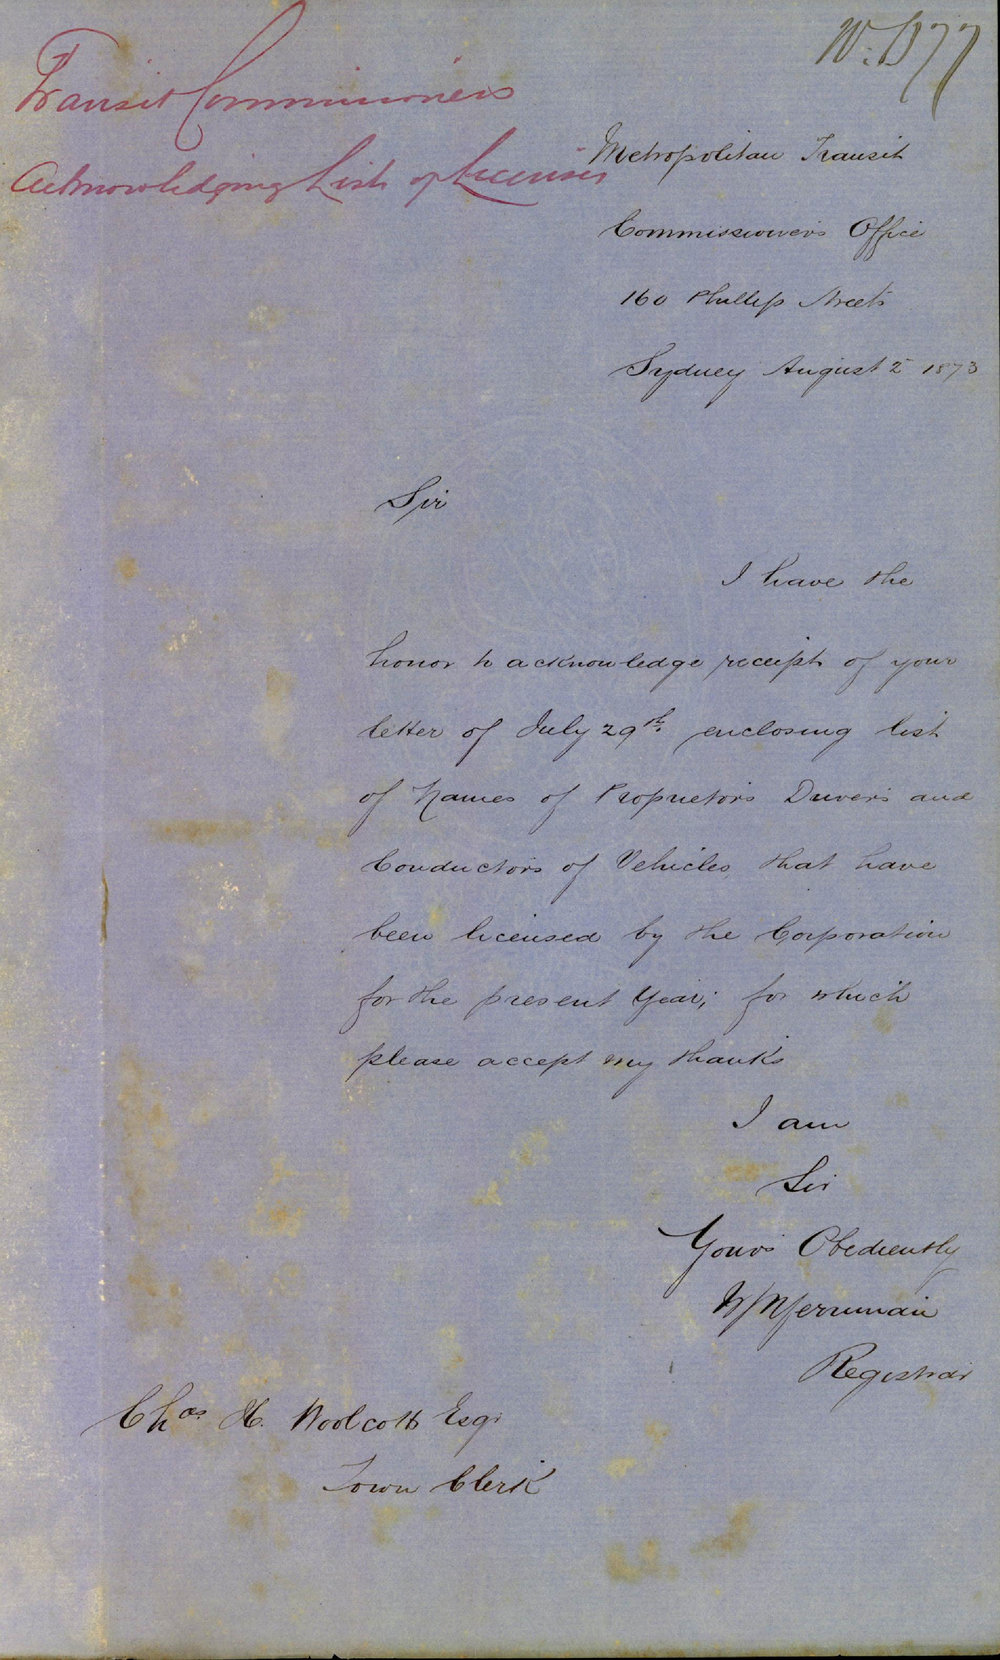 Transit Commissioners
Acknowledging List of Licenses
Metropolitan Transit
Commissioners Office
160 Phillip Street
Sydney August 2 1873
Sir
I have the
honor to acknowledge receipt of your
letter of July 29th enclosing list
of Names of Proprietors Drivers and
Conductors of Vehicles that have
been licensed by the Corporation
for the present Year; for which
please accept my thanks
I am
Sir
Yours Obediently
Merriman
Registrar
Chas H. Woolcott Esqr
Town Clerk